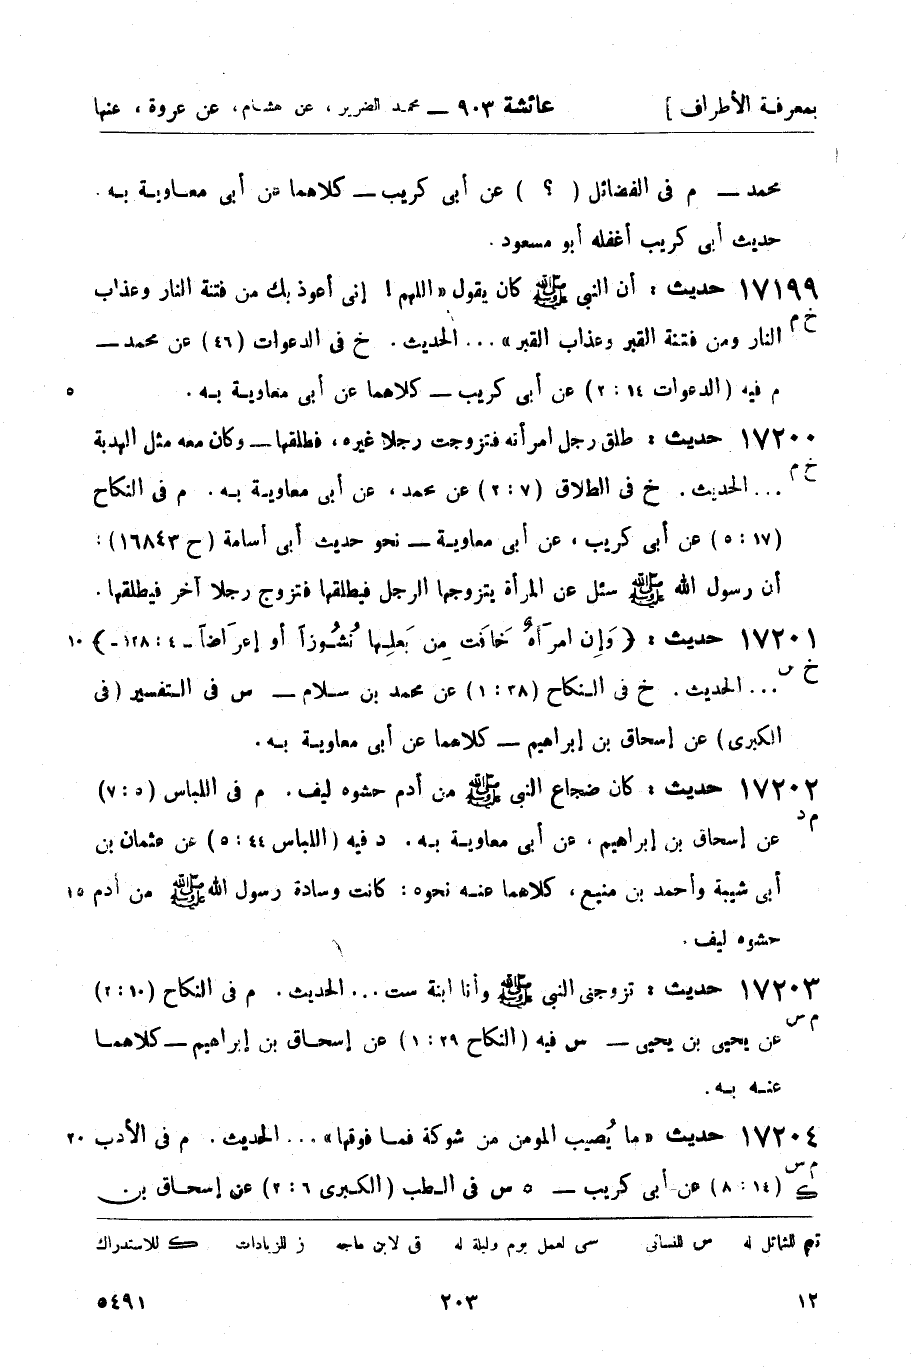 بمعرفة الأطراف ] عائشة ٩٠٣ ــ محمد الضرير ، عن هشام ، عن عروة ، عنها
محمد ــ م فى الفضائل ( ؟ ) عن أبى كريب ــ كلاهما عن أبى معـاويـة بـه .
حديث أبى كريب أغفله أبو مسعود .
١٧١٩٩ حديث : أن النبى ﷺ كان يقول « اللهم ! إنى أعوذ بك من فتنة النار وعذاب
خ م النار ومن فتنة القبر وعذاب القبر » ... الحديث . خ فى الدعوات (٤٦) عن محمد ــ
م فيه (الدعوات ١٤ : ٢) عن أبى كريب ــ كلاهما عن أبى معاويـة بـه . ٥
١٧٢٠٠ حديث : طلق رجل امرأته فتزوجت رجلا غيره ، فطلقها ــ وكان معه مثل الهدبة
خ م ... الحديث . خ فى الطلاق (٧ : ٢) عن محمد ، عن أبى معاويـة بـه . م فى النكاح
(١٧ : ٥) عن أبى كريب ، عن أبى معاويـة ــ نحو حديث أبى أسامة (ح ١٦٨٤٣) :
أن رسول الله ﷺ سئل عن المرأة يتزوجها الرجل فيطلقها فتزوج رجلا آخر فيطلقها .
١٧٢٠١ حديث : { وَإن امرَأةٌ خَافَت مِن بَعلِـها نُشُـوزاً أو إعرَاضاً ـ ٤ : ١٢٨ ـ } ١٠
خ س ... الحديث . خ فى النكاح (٣٨ : ١) عن محمد بن سـلام ــ س فى التفسير (فى
الكبرى) عن إسحاق بن إبراهيم ــ كلاهما عن أبى معاويـة بـه .
١٧٢٠٢ حديث : كان ضجاع النبى ﷺ من أدم حشوه ليف . م فى اللباس (٥ : ٧)
م د عن إسحاق بن إبراهيم ، عن أبى معاويـة بـه . د فيه (اللباس ٤٤ : ٥) عن عثمان بن
أبى شيبة وأحمد بن منيع ، كلاهما عنـه نحوه : كانت وسادة رسول الله ﷺ من أدم ١٥
حشوه ليف .
١٧٢٠٣ حديث : تزوجنى النبى ﷺ وأنا ابنة ست ... الحديث . م فى النكاح (١٠ : ٢)
م س عن يحيى بن يحيى ــ س فيه (النكاح ٢٩ : ١) عن إسحـاق بن إبراهيم ــ كلاهمـا
عنـه بـه .
١٧٢٠٤ حديث « ما يُصيب المؤمن من شوكة فمـا فوقها » ... الحديث . م فى الأدب ٢٠
م س ك (١٤ : ٨) عن أبى كريب ــ ٥ س فى الـطب (الكبرى ٦ : ٢) عن إسحـاق بن
تم للشمائل له س للنسائى سى لعمل يوم وليلة له ق لابن ماجه ز للزيادات ك للاستدراك
١٢ ٢٠٣ ٥٤٩١